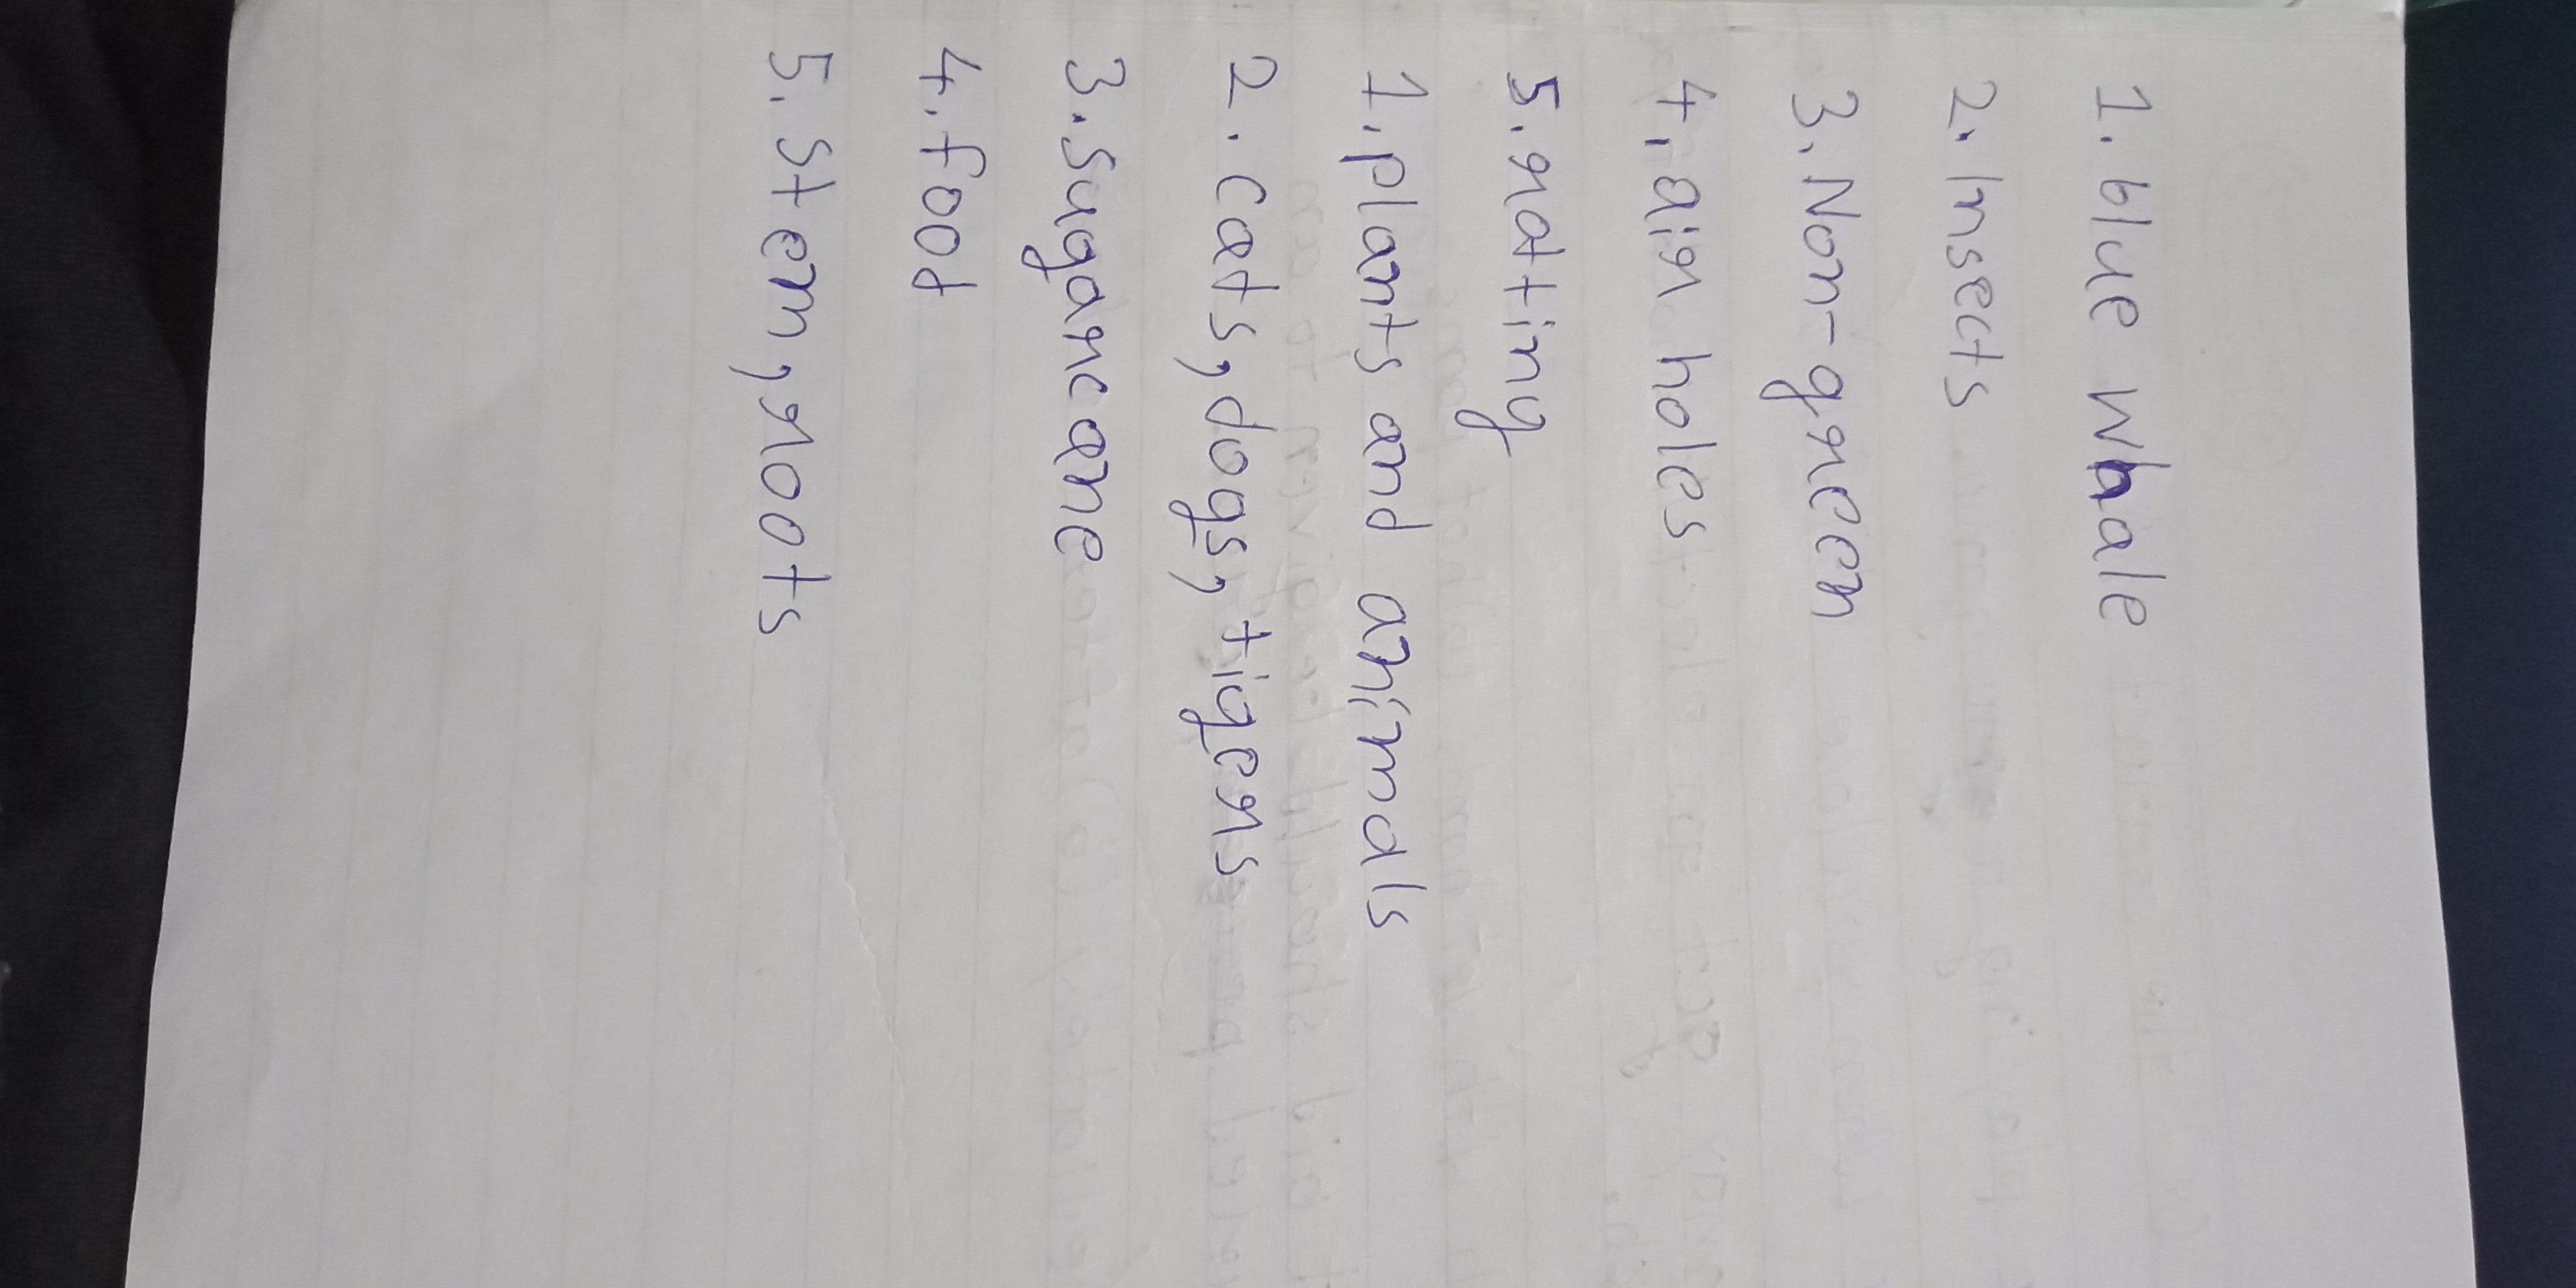 1. blue whale
2. Insects
3. Non-green
4. air holes
5. rotting
1. plants and animals
2. cats, dogs, tigers
3. sugarcane
4. food
5. stem, roots